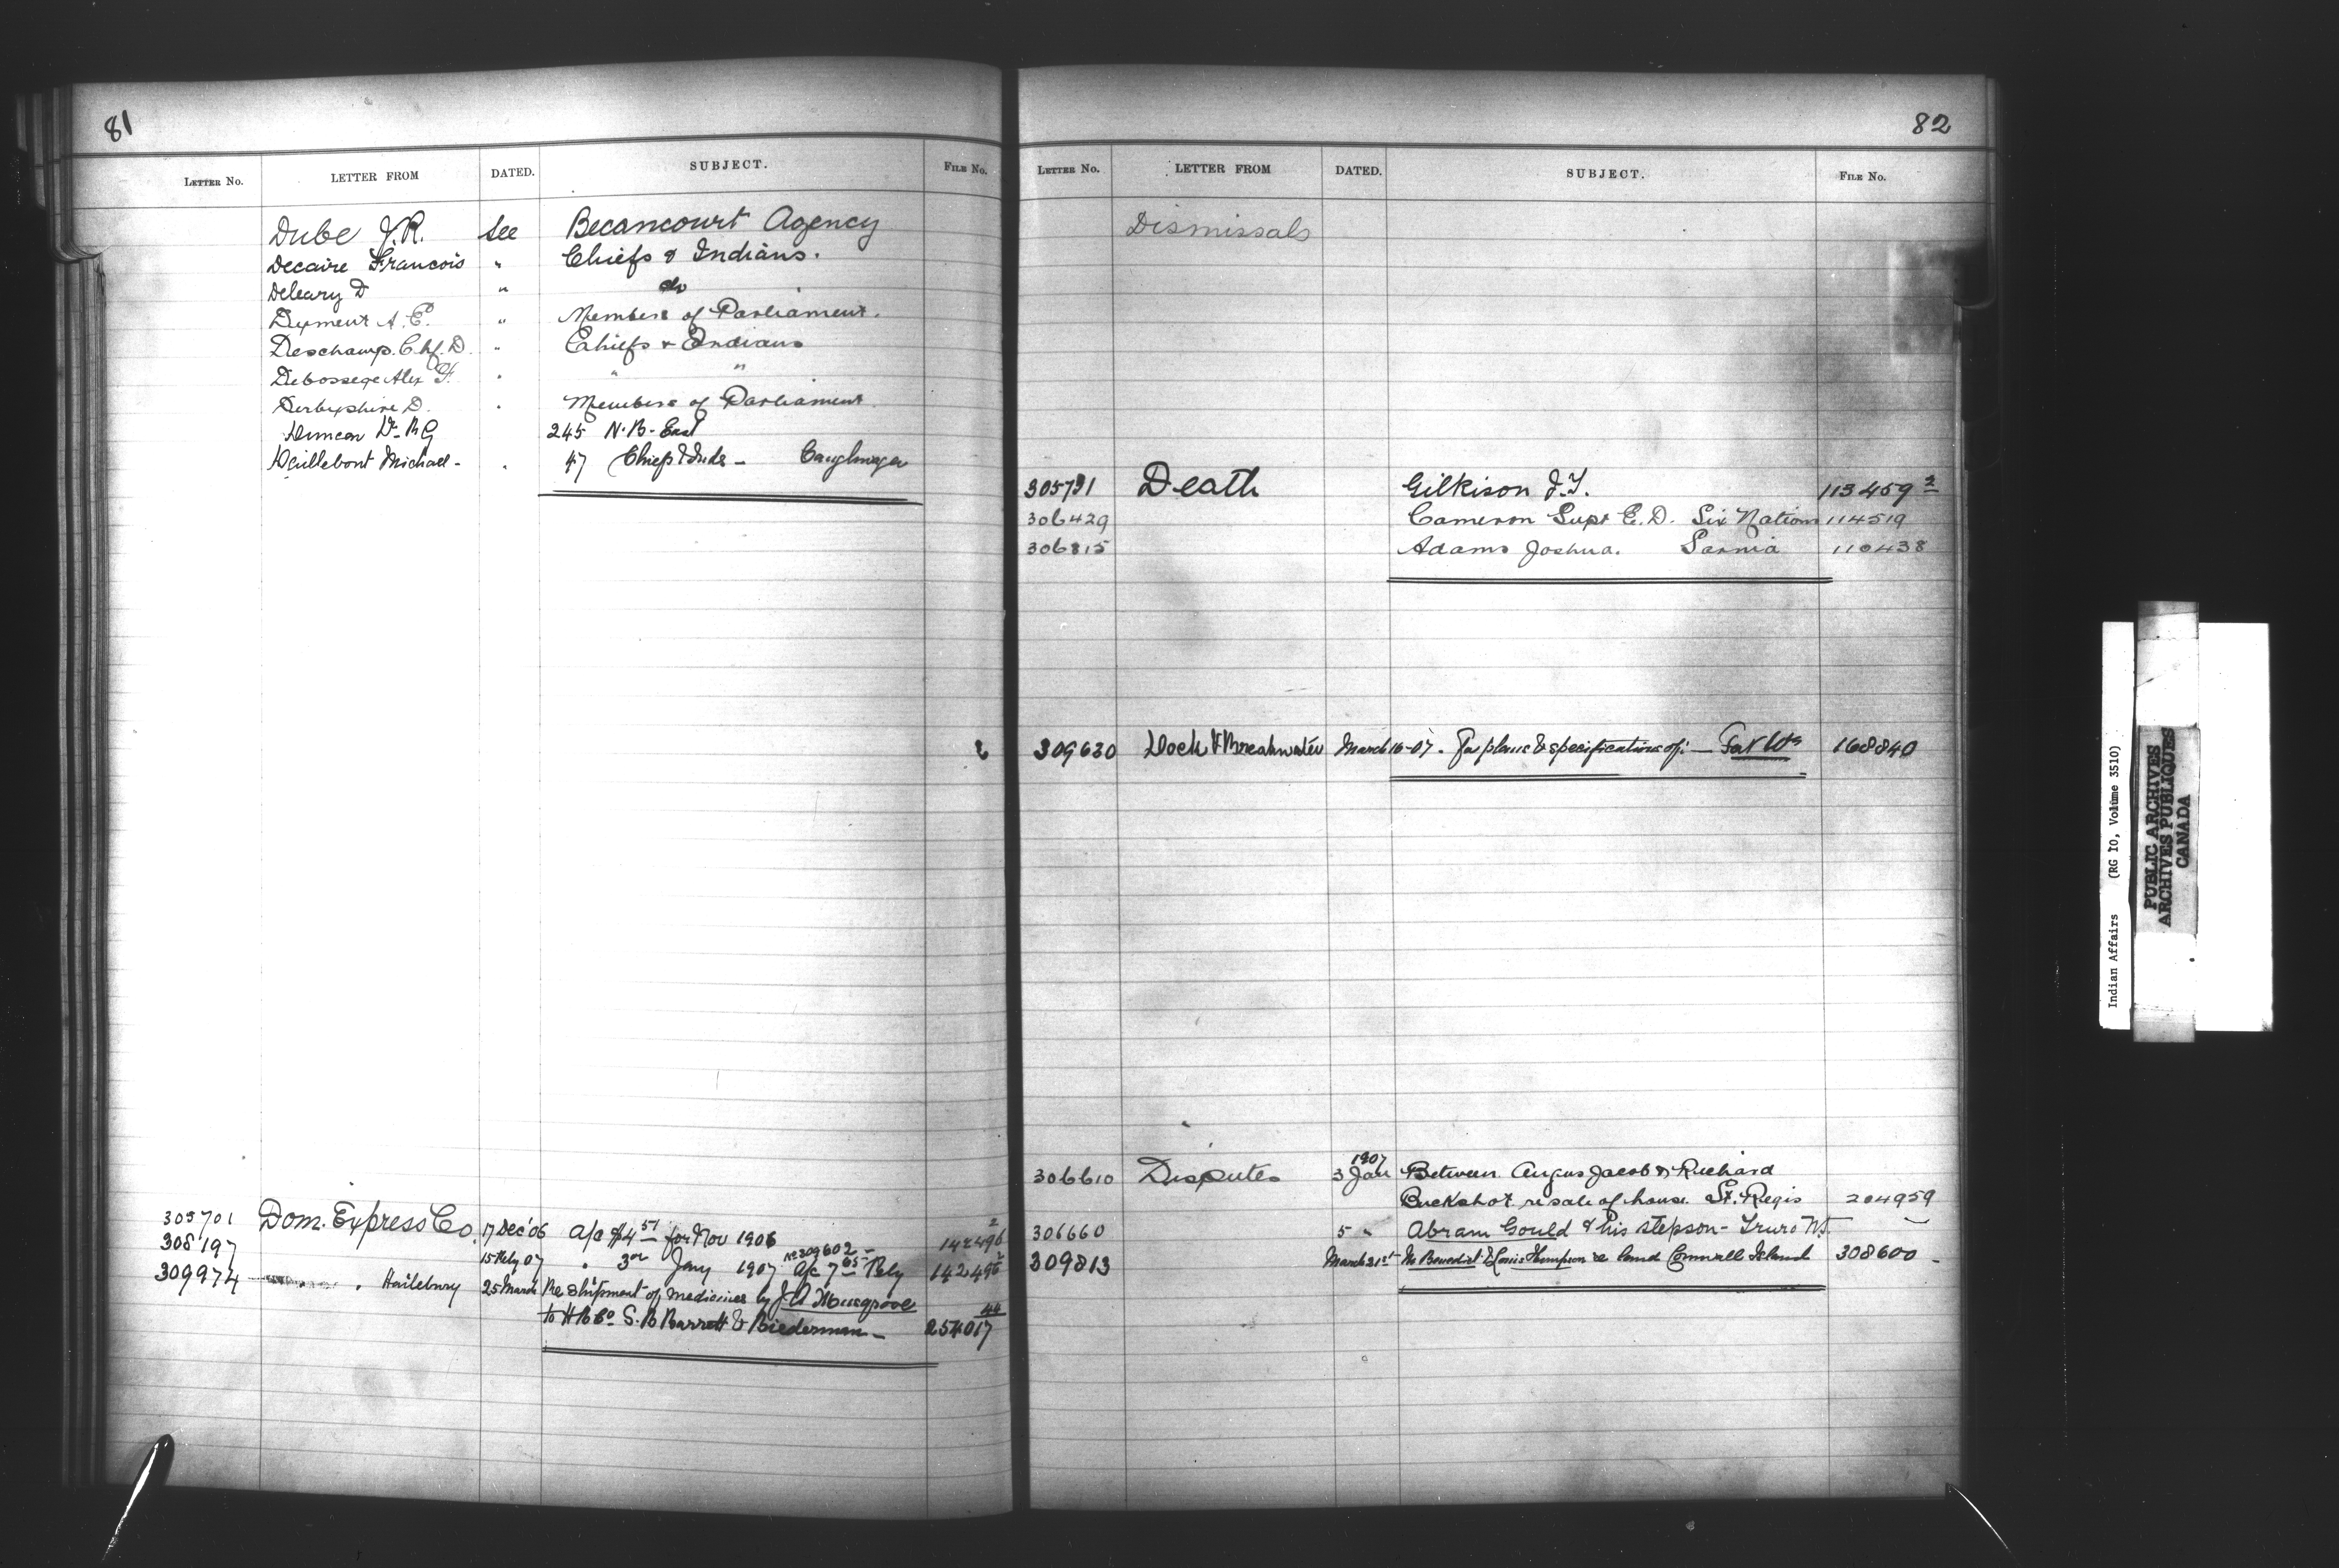 81
LETTER No. LETTER FROM DATED. SUBJECT. FILE No.
Dube J.R. see Becancourt Agency
Decaire Francois " Chiefs & Indians.
Deleary D " do
Dyment A. E. " Members of Parliament.
Deschamp. Chf. D. " Chiefs & Indians
Debossege Alex F. " " "
Derbyshire D. " Members of Parliament.
Duncan Dr. 245 N.B. East
Daillebout Michael - " 47 Chiefs & Inds - Caughnaga
305701 Dom. Express Co. 17 Dec '06 a/c $4 51 for Nov 1906 142496 2
308197 15 Feby 07 " 3 Jany 1907 No 309602 - a/c 7 65 Feby 142496 2
309974 " Hailebury 25 March Re shipment of medicines by J A Musgrove
to H B Co S. B Barrett & Biederman - 254017 44
82
LETTER No. LETTER FROM DATED. SUBJECT. FILE No.
Dismissals
305731 Death Gilkison J.T. 113459 2
306429 Cameron Supt E. D. Six Nations 114519
306815 Adams Joshua. Sarnia 110438
309630 Dock & Breakwater March 16-07. For plans & specifications of: - Fort Wm 168840
1907
306610 Disputes 3 Jan Between Angus Jacob & Richard
Buckshot re sale of house St. Regis 204959
306660 5 " Abram Gould & his stepson - Truro N.S.
309813 March 21st Benedict & Louis Thompson re land Cornwall Island 308600 -
Indian Affairs (RG 10, Volume 3510)
PUBLIC ARCHIVES
ARCHIVES PUBLIQUES
CANADA